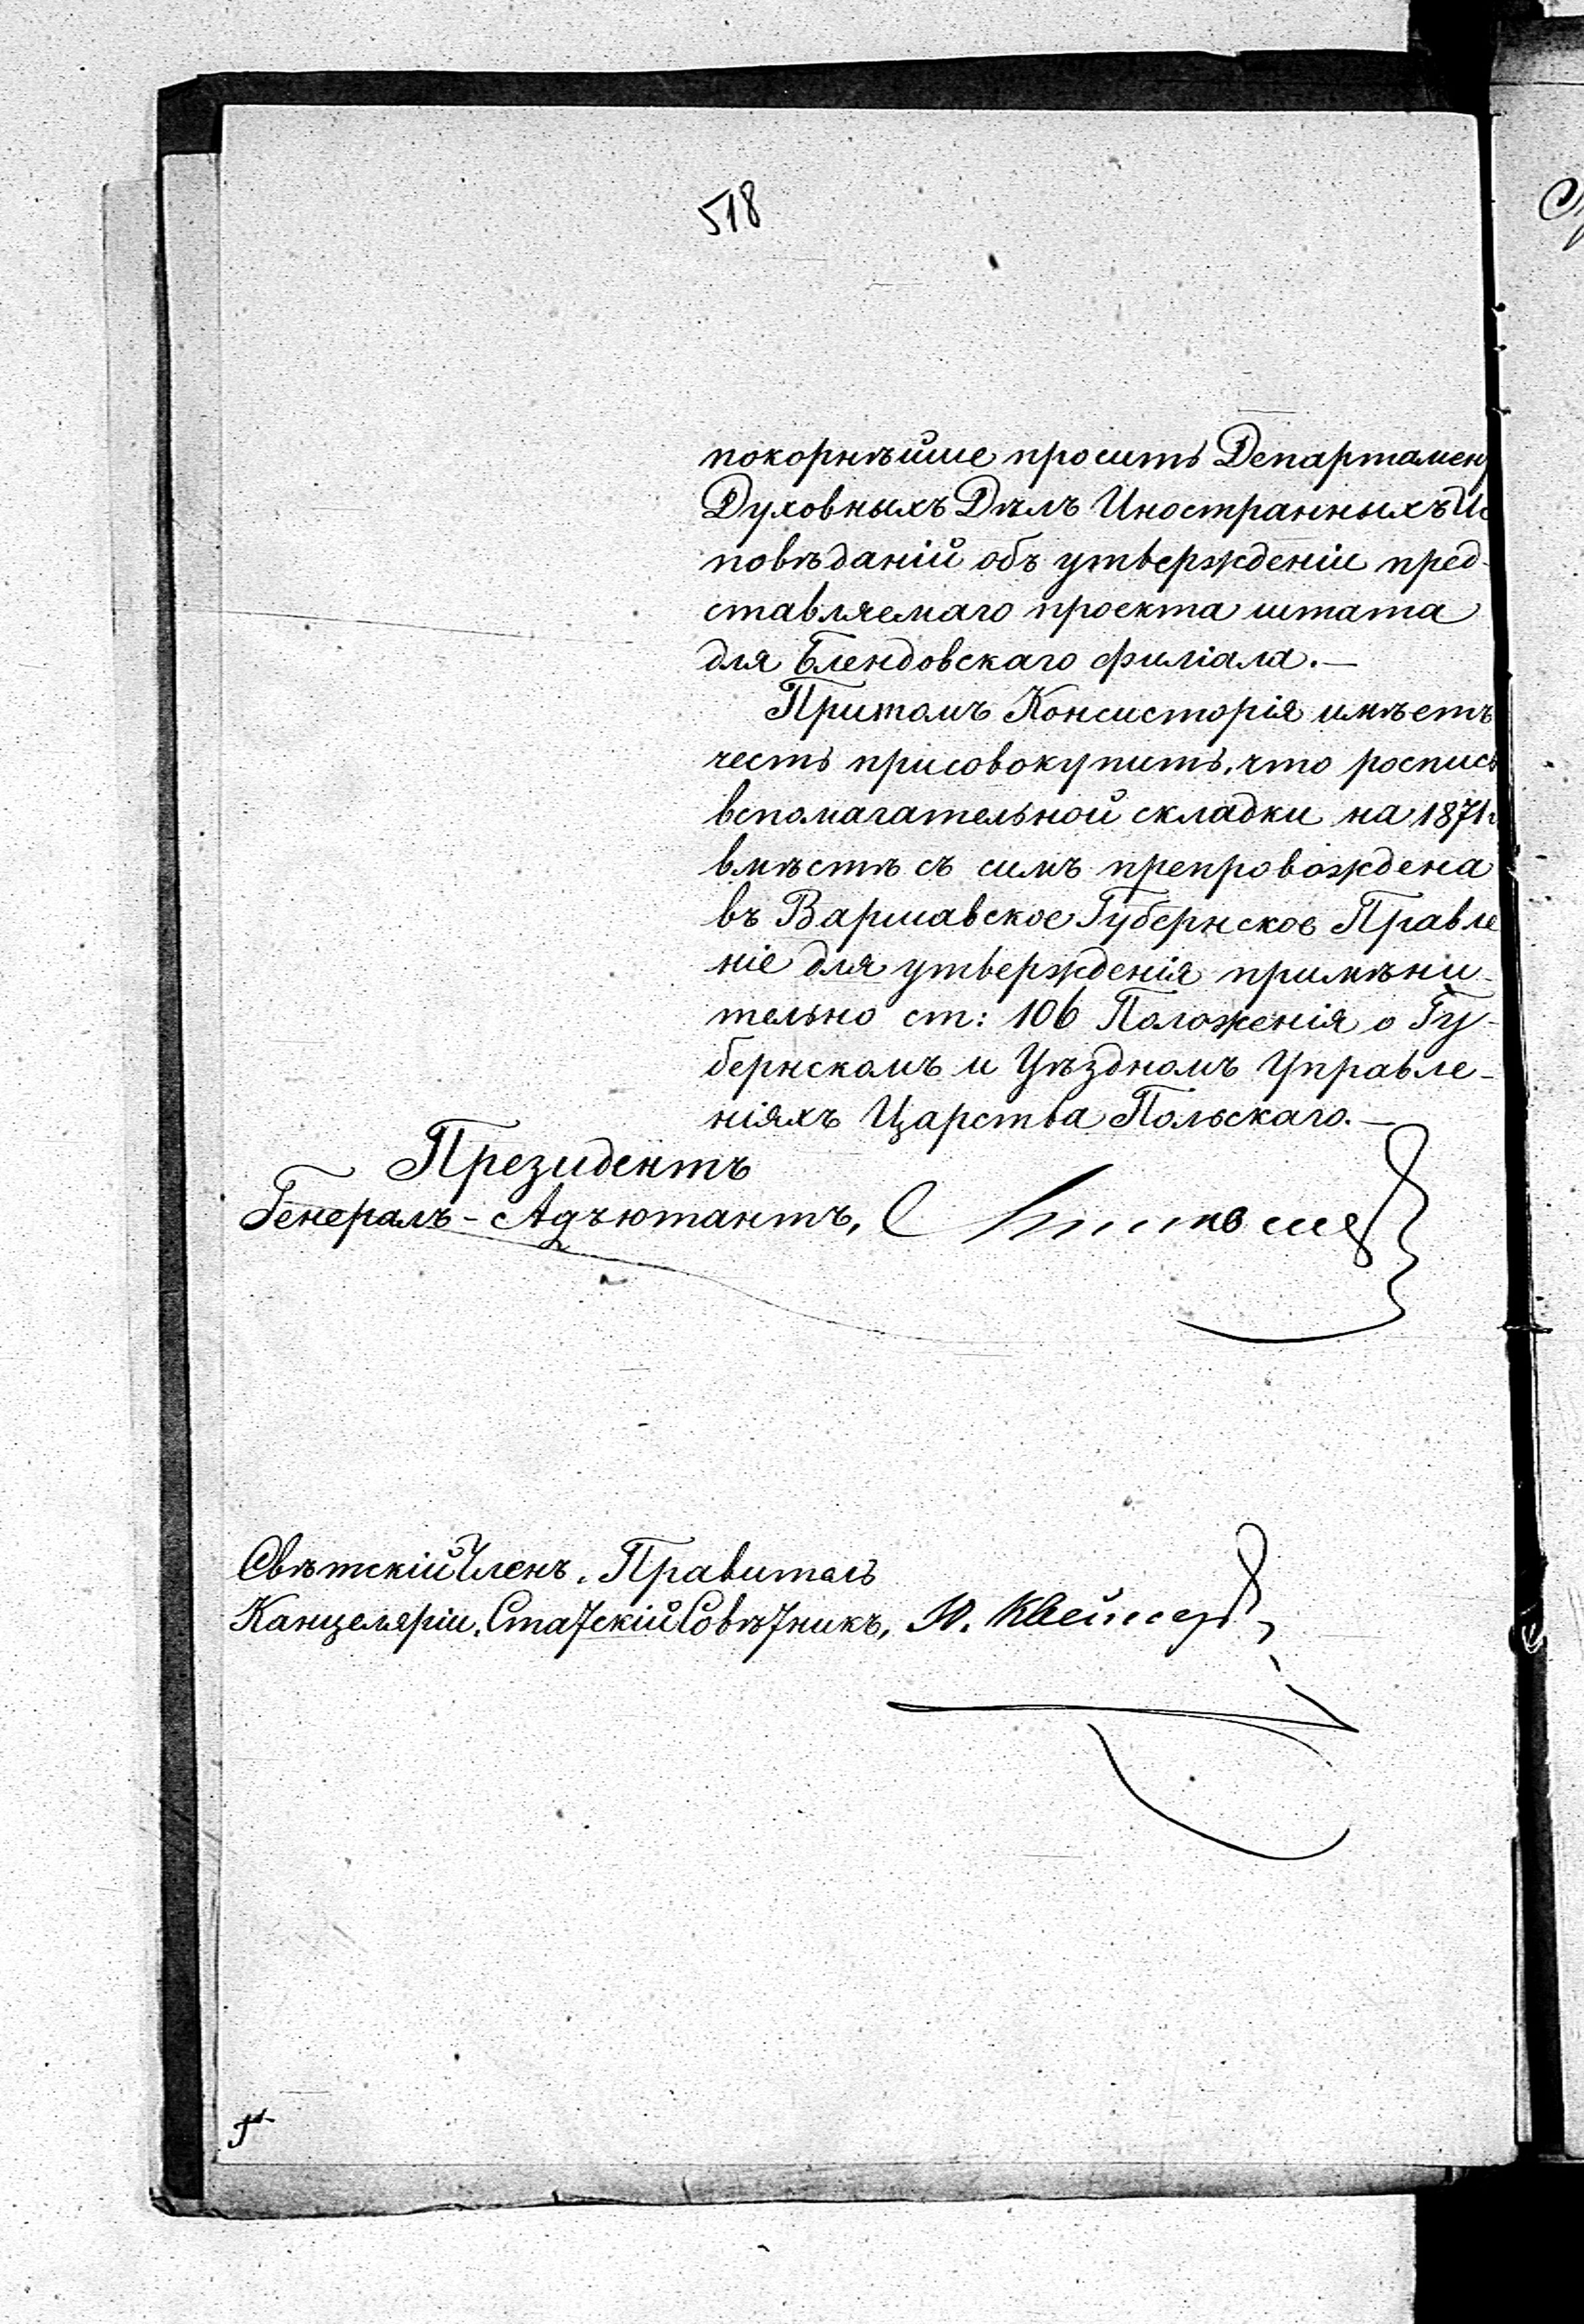 518
покорнѣйше просить Департамен
Духовныхъ Дѣлъ Иностранныхъ Ис
повѣданій объ утвержденіи пред-
ставляемаго проекта штата
для Блендовскаго филіала.—
Притомъ Консисторія имѣетъ
честь присовокупить, что роспись
вспомагательной складки на 1871 г
вмѣстѣ съ симъ препровождена
въ Варшавское Губернское Правле
ніе для утвержденія примѣни-
тельно ст: 106 Положенія о Гу-
бернскомъ и Уѣздномъ Управле-
ніяхъ Царства Польскаго.—
Президентъ
Генералъ-Адъютантъ,
Свѣтскій Членъ, Правитель
Канцеляріи, Статскій Совѣтникъ, Ю.